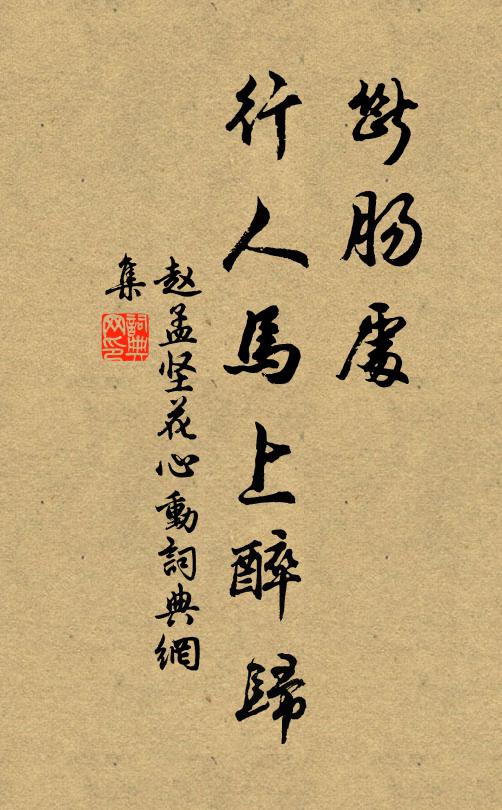 断肠處
行人馬上醉歸
赵孟坚花心動詞典網
集
詞典网印